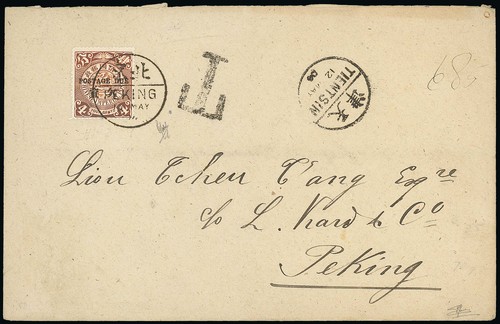 POSTAGE DUE
4 4
北京
PEKING
MAY
T
TIENTSIN
12
MAY
天津
68
Liou Tcheu T'ang Esqre
c/o L. Kard & Co
Peking